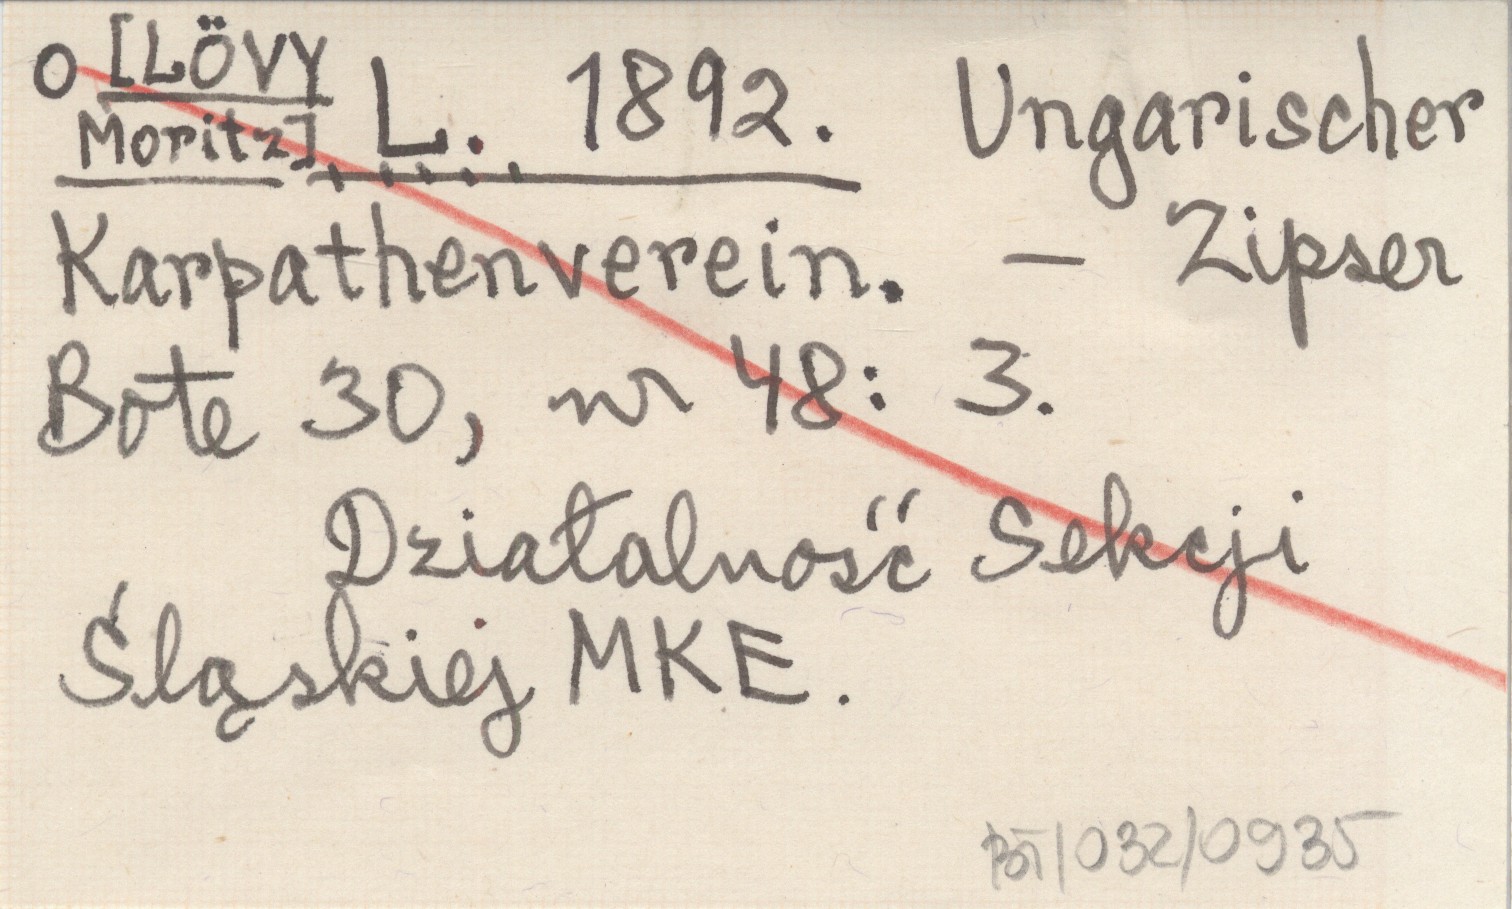 o [LÖVY
Moritz] L. 1892. Ungarischer
Karpathenverein. — Zipser
Bote 30, nr 48: 3.
Działalność Sekcji
Śląskiej MKE.
BT/032/0935